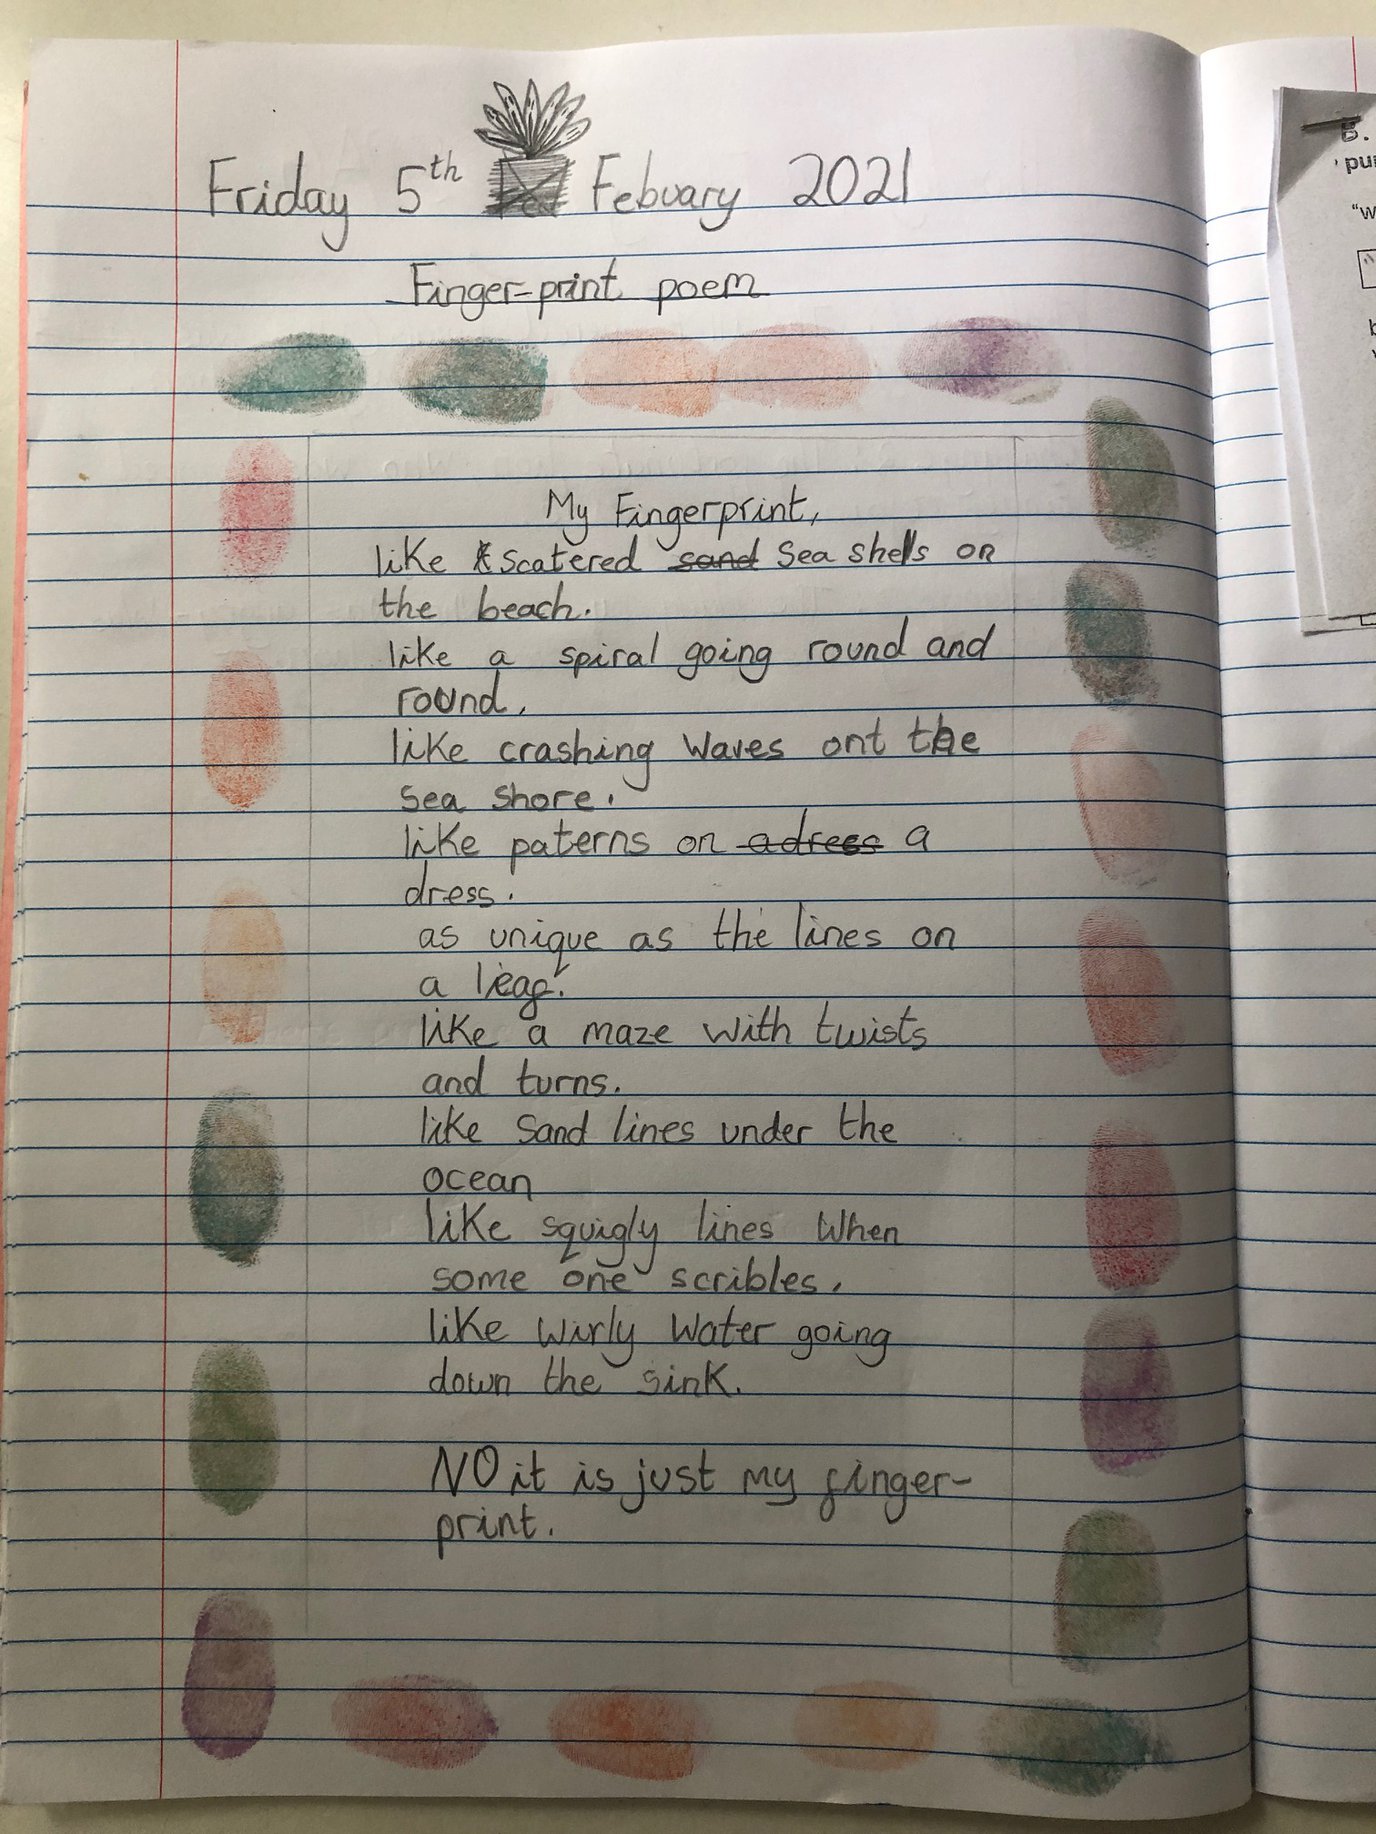 Friday 5th Febuary 2021
Finger-print poem
My Fingerprint,
like scatered sand sea shells on
the beach.
like a spiral going round and
round.
like crashing waves ont the
sea shore.
like paterns on adress a
dress.
as unique as the lines on
a leaf.
like a maze with twists
and turns.
like sand lines under the
ocean
like squigly lines when
some one scribles.
like wirly water going
down the sink.
NO it is just my finger-
print.
B.
pu
"w